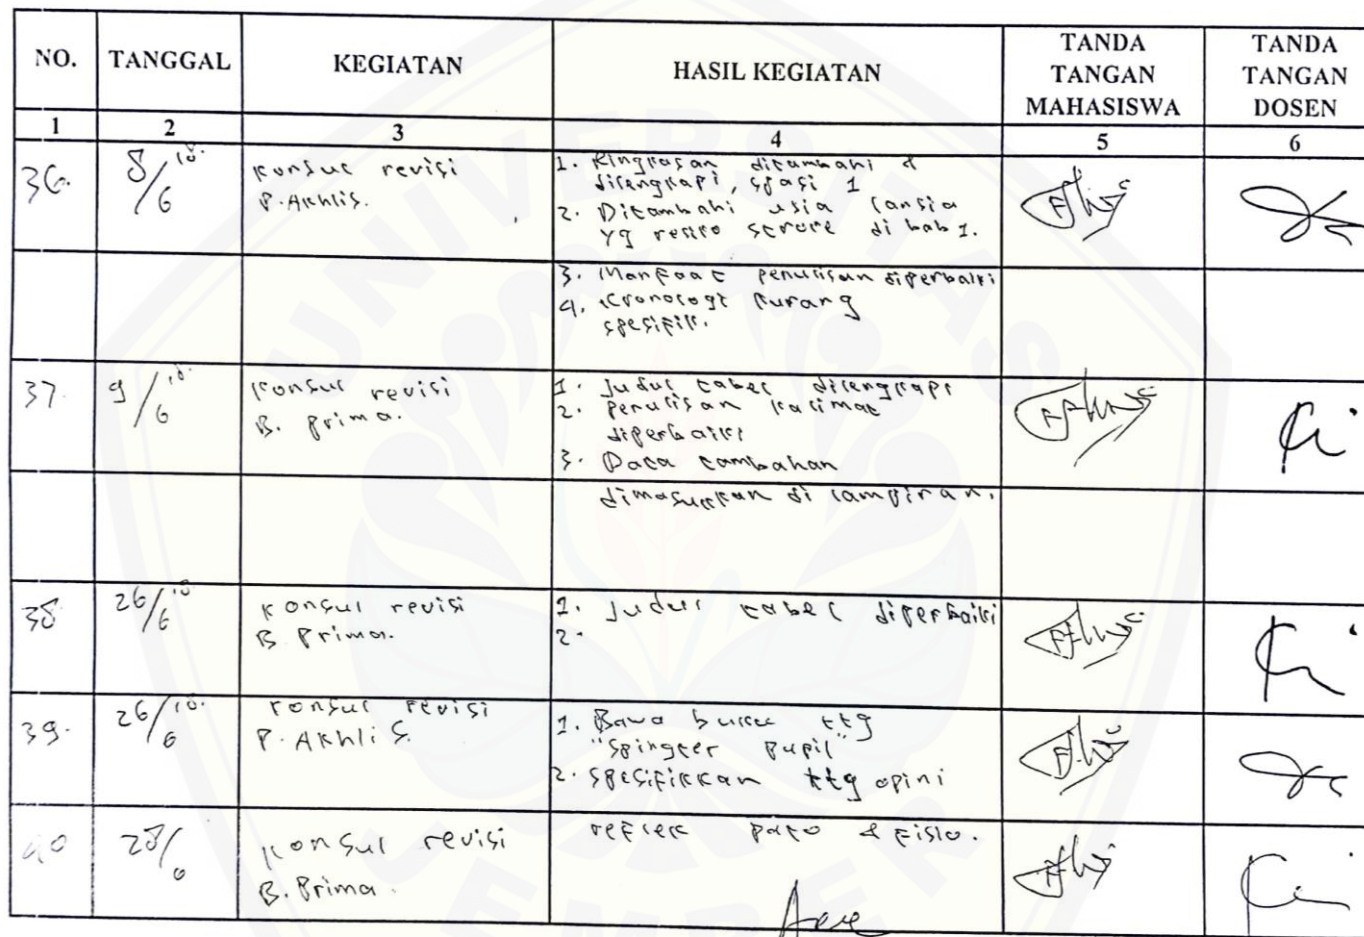 NO. TANGGAL KEGIATAN HASIL KEGIATAN TANDA TANGAN MAHASISWA TANDA TANGAN DOSEN
1 2 3 4 5 6
36. 8/6 18. Konsul revisi
P. Akhlis.
1. Ringkasan ditambahi &
dilengkapi, spasi 1
2. Ditambahi usia lansia
yg resiko stroke di bab 1.
3. Manfaat penulisan diperbaiki
4. Kronologi kurang
spesifik.
37. 9/6 18. Konsul revisi
B. Prima.
1. Judul tabel dilengkapi
2. Penulisan kalimat
diperbaiki
3. Data tambahan
dimasukkan di lampiran.
38. 26/6 18 Konsul revisi
B. Prima.
1. Judul tabel diperbaiki
2.
39. 26/6 18. Konsul revisi
P. Akhlis.
1. Bawa buku ttg
"Spingter pupil"
2. Spesifikkan ttg opini
reflek pato & fislo.
40 28/6 Konsul revisi
B. Prima.
Acc
UNIVERSITAS
JEMBER